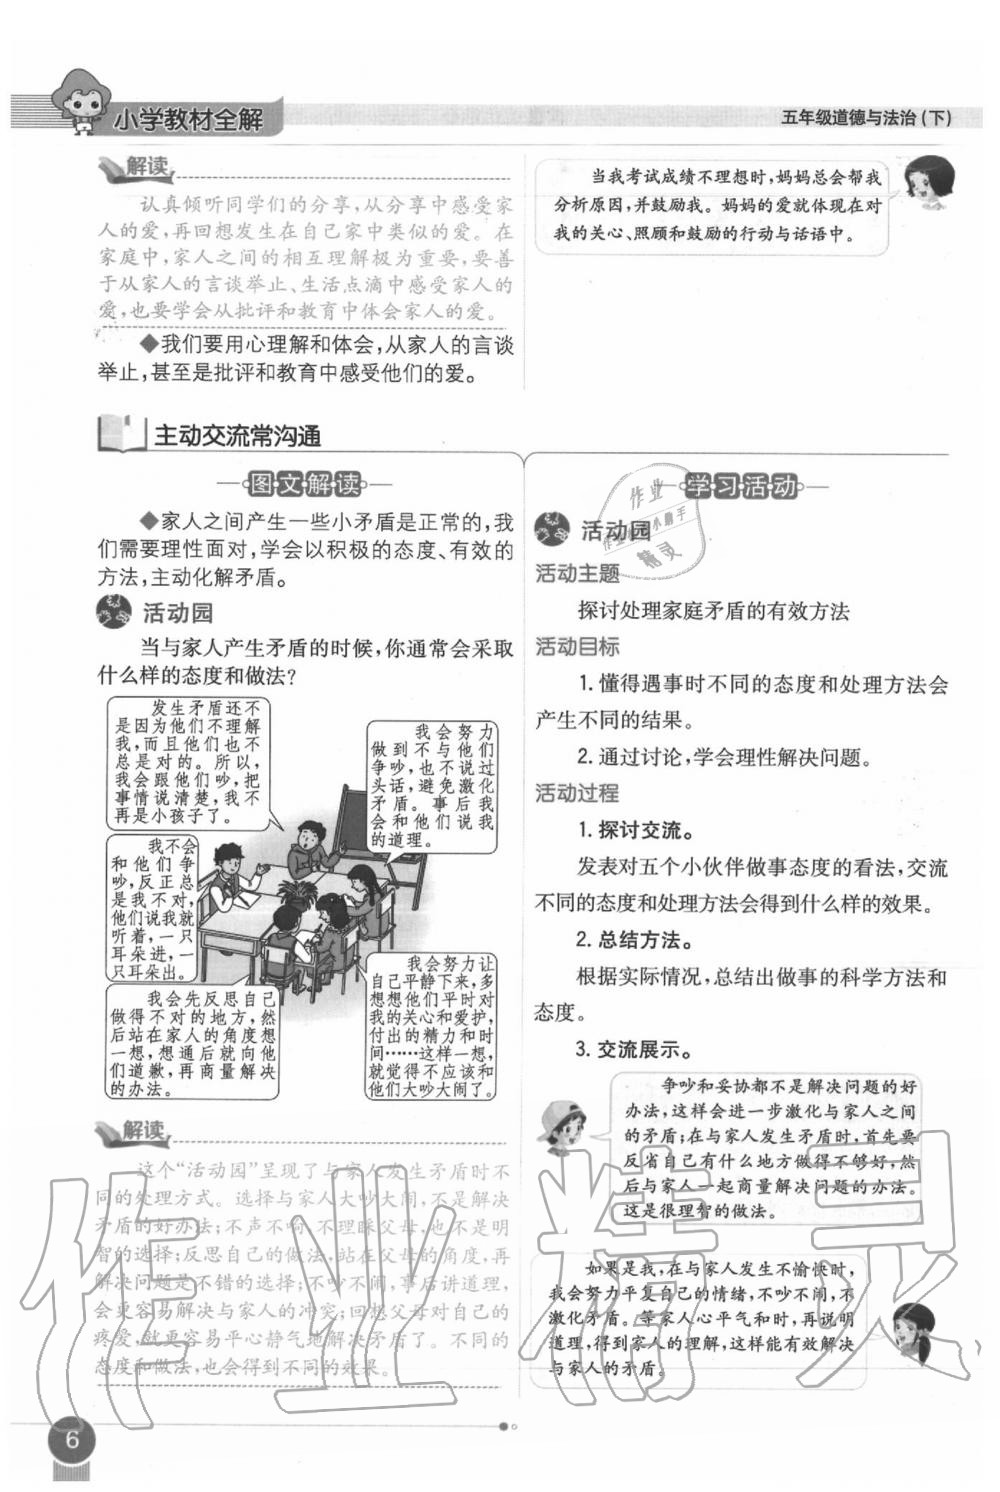 小学教材全解
五年级道德与法治(下)
解读
认真倾听同学们的分享,从分享中感受家
人的爱,再回想发生在自己家中类似的爱。在
家庭中,家人之间的相互理解极为重要,要善
于从家人的言谈举止、生活点滴中感受家人的
爱,也要学会从批评和教育中体会家人的爱。
◆我们要用心理解和体会,从家人的言谈
举止,甚至是批评和教育中感受他们的爱。
当我考试成绩不理想时,妈妈总会帮我
分析原因,并鼓励我。妈妈的爱就体现在对
我的关心、照顾和鼓励的行动与话语中。
主动交流常沟通
图文解读
◆家人之间产生一些小矛盾是正常的,我
们需要理性面对,学会以积极的态度、有效的
方法,主动化解矛盾。
活动园
当与家人产生矛盾的时候,你通常会采取
什么样的态度和做法?
发生矛盾还不
是因为他们不理解
我,而且他们也不
总是对的。所以,
我会跟他们吵,把
事情说清楚,我不
再是小孩子了。
我会努力
做到不与他们
争吵,也不说过
头话,避免激化
矛盾。事后我
会和他们说我
的道理。
我不会
和他们争
吵,反正总
是我不对,
他们说我就
听着,一只
耳朵进,一
只耳朵出。
我会先反思自己
做得不对的地方,然
后站在家人的角度想
一想,想通后就向他
们道歉,再商量解决
的办法。
我会努力让
自己平静下来,多
想想他们平时对
我的关心和爱护,
付出的精力和时
间……这样一想,
就觉得不应该和
他们大吵大闹了。
解读
这个“活动园”呈现了与家人发生矛盾时不
同的处理方式。选择与家人大吵大闹,不是解决
矛盾的好办法;不声不响、不理睬父母,也不是明
智的选择;反思自己的做法,站在父母的角度,再
解决问题是不错的选择;不吵不闹,事后讲道理,
会更容易解决与家人的冲突;回想父母对自己的
疼爱,就更容易平心静气地解决矛盾了。不同的
态度和做法,也会得到不同的效果。
学习活动
活动园
活动主题
探讨处理家庭矛盾的有效方法
活动目标
1. 懂得遇事时不同的态度和处理方法会
产生不同的结果。
2. 通过讨论,学会理性解决问题。
活动过程
1. 探讨交流。
发表对五个小伙伴做事态度的看法,交流
不同的态度和处理方法会得到什么样的效果。
2. 总结方法。
根据实际情况,总结出做事的科学方法和
态度。
3. 交流展示。
争吵和妥协都不是解决问题的好
办法,这样会进一步激化与家人之间
的矛盾;在与家人发生矛盾时,首先要
反省自己有什么地方做得不够好,然
后与家人一起商量解决问题的办法。
这是很理智的做法。
如果是我,在与家人发生不愉快时,
我会努力平复自己的情绪,不吵不闹,不
激化矛盾。等家人心平气和时,再说明
道理,得到家人的理解,这样能有效解决
与家人的矛盾。
作业精灵
6